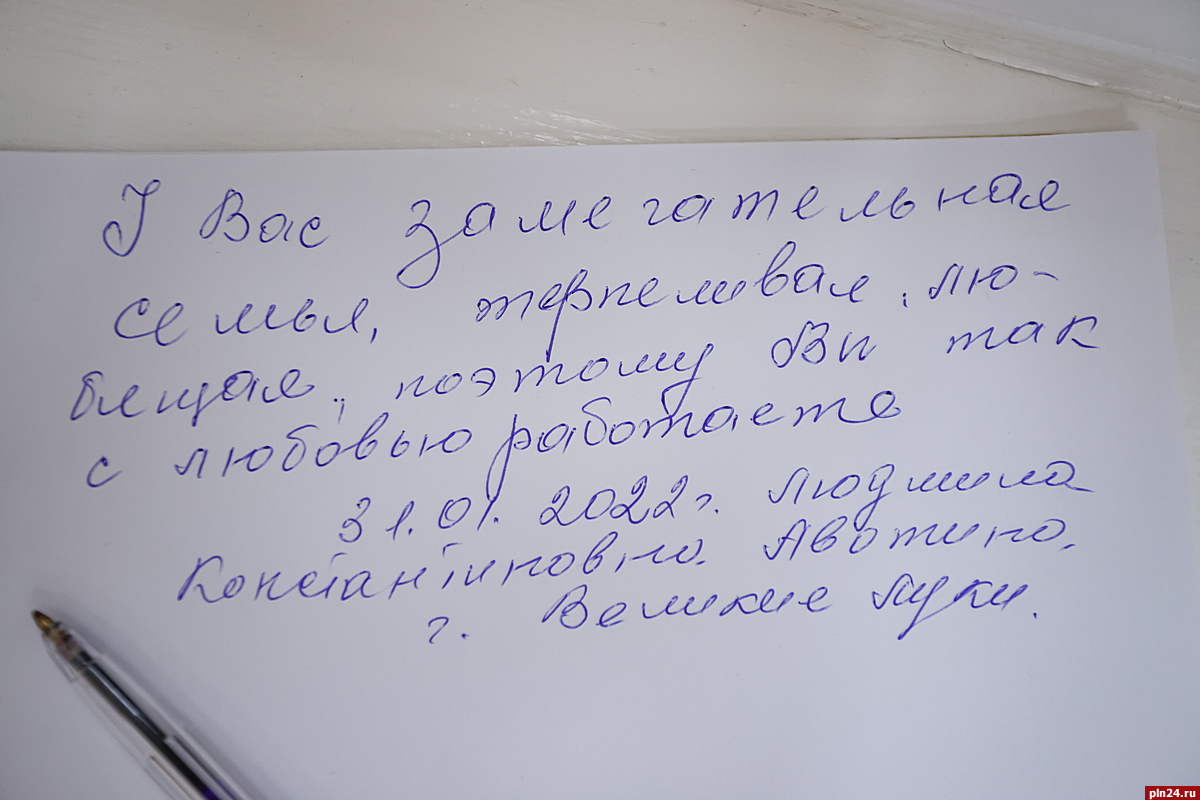 У Вас замечательная
семья, терпеливая, лю-
блящая, поэтому Вы так
с любовью работаете
31.01.2022г. Людмила
Константиновна Авотина.
г. Великие Луки.
pln24.ru